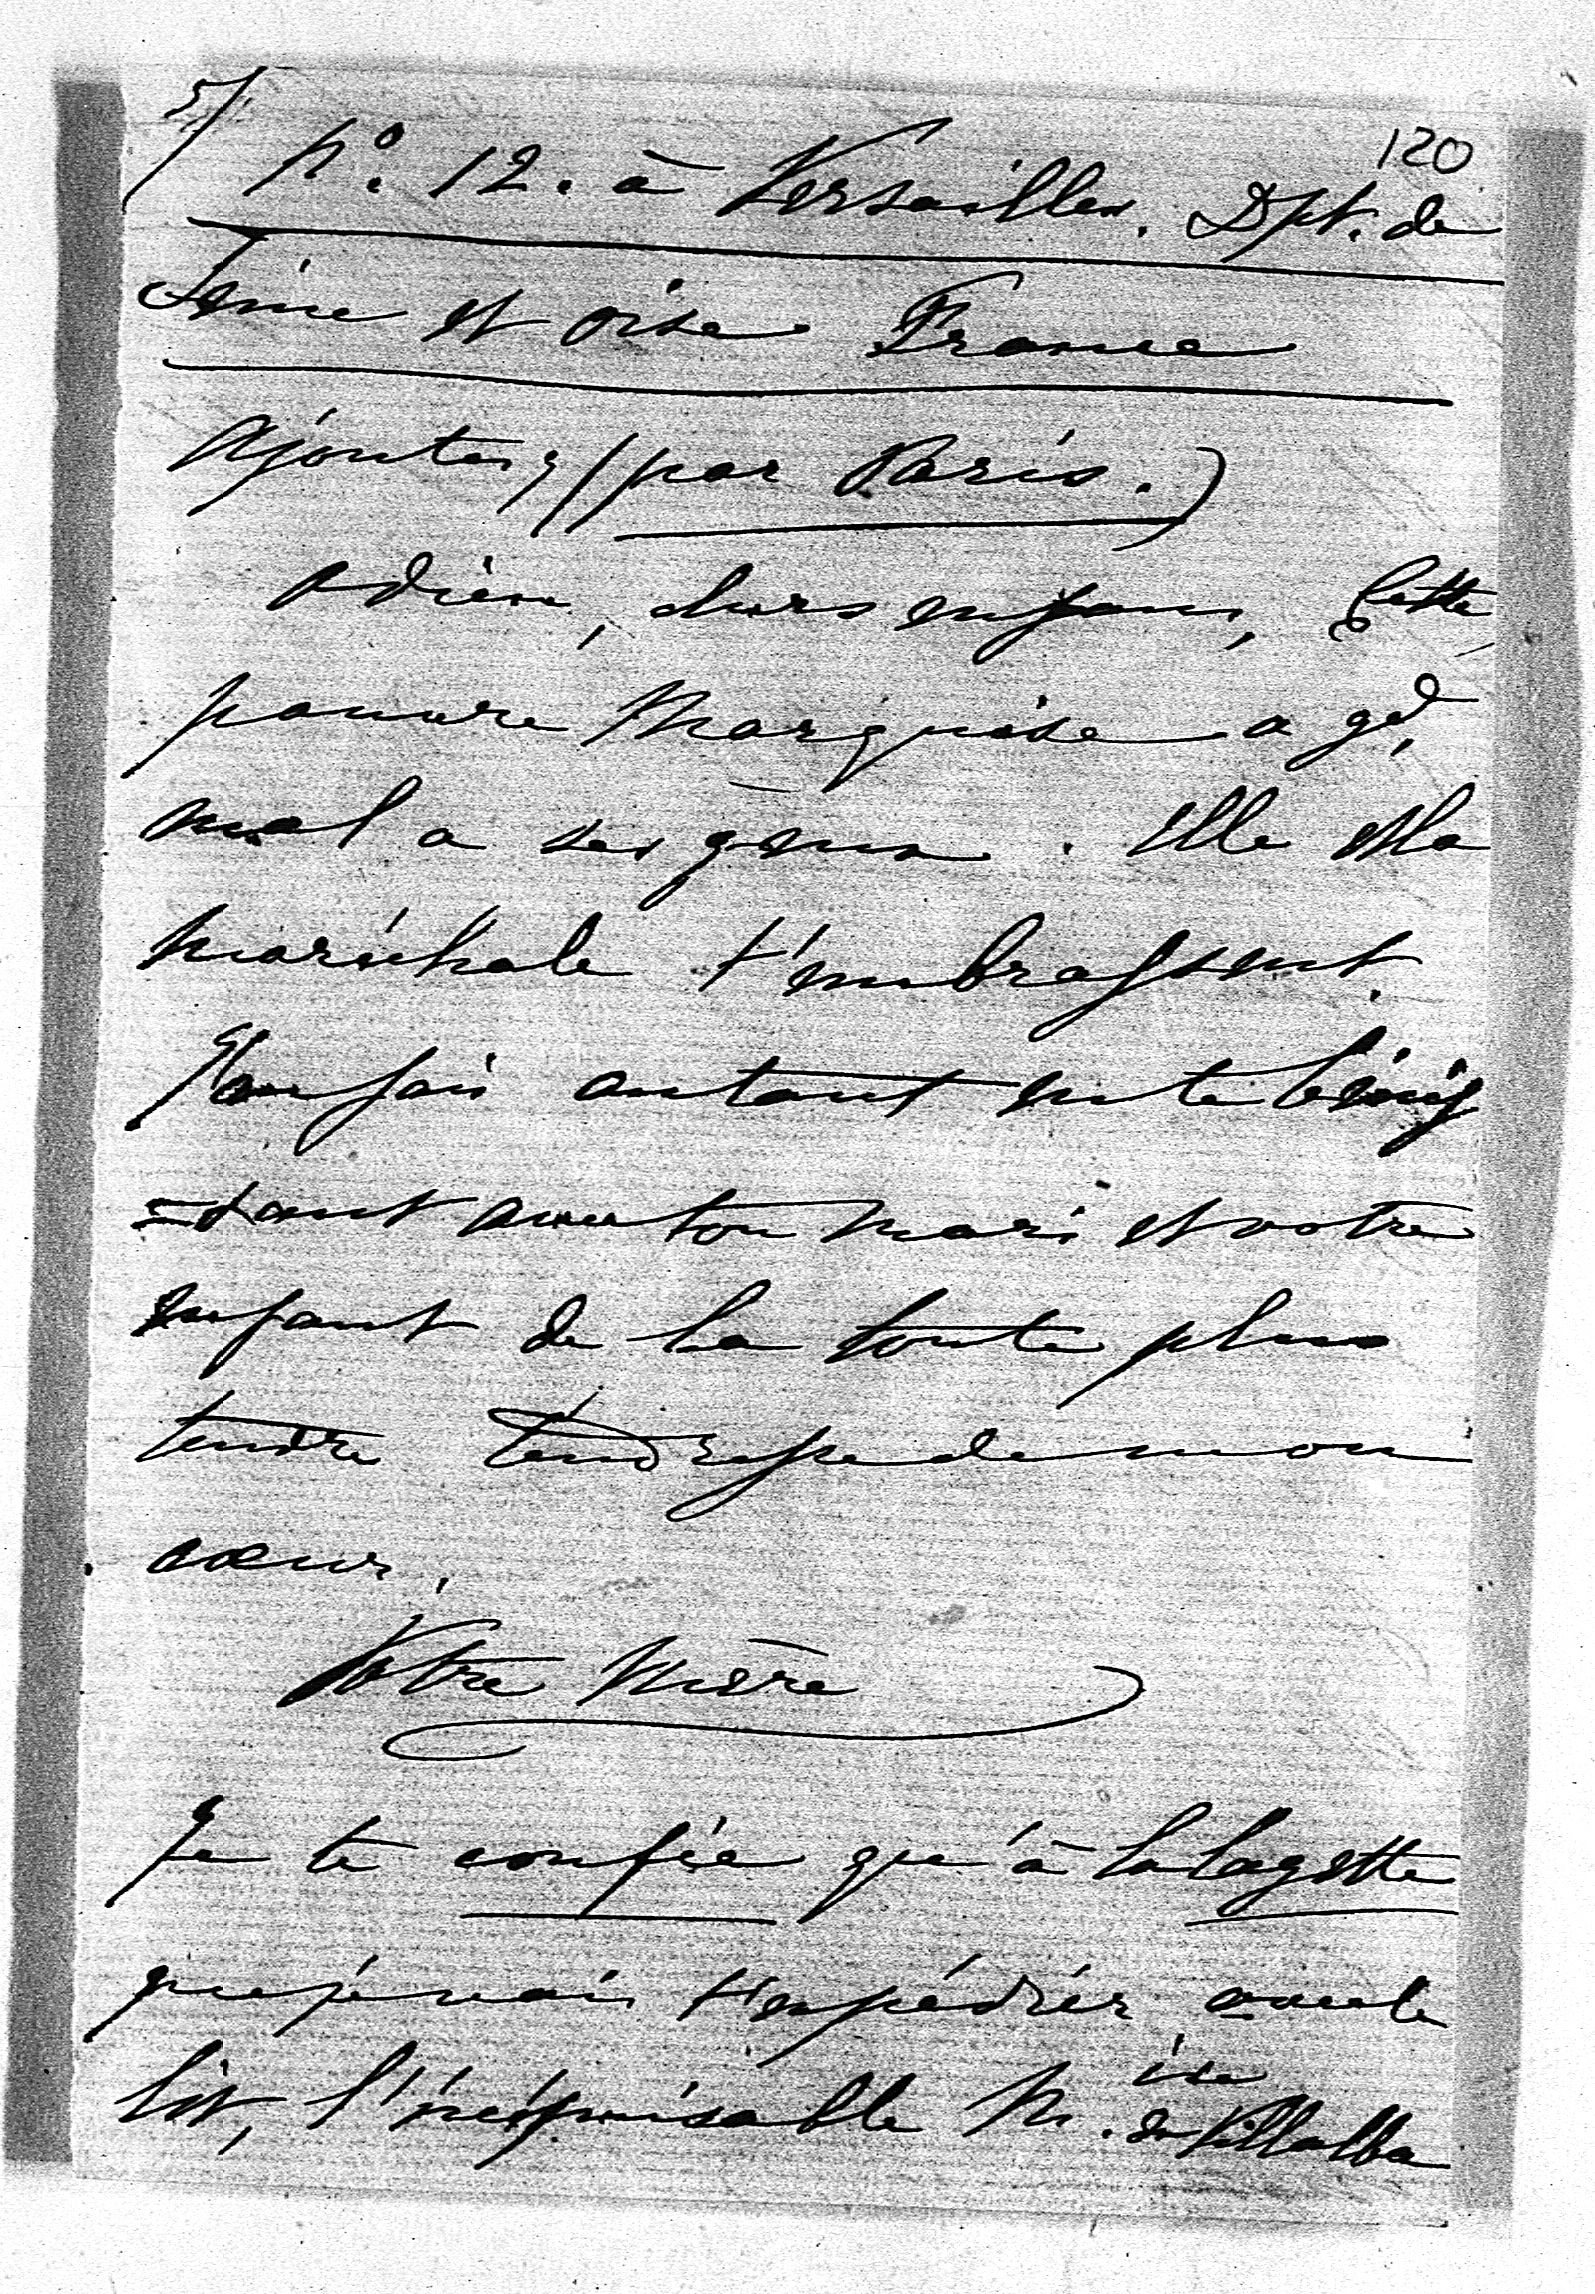 5/
120
N.º 12. à Versailles. Dpt. de
Seine et Oise France
Ajoutez (par Paris.)
Adieu, chers enfans, Cette
pauvre Marquise a gd.
mal a ses yeux. Elle et la
Maréchale t'embrassent.
J'en fais autant en te béniss
=sant avec ton mari et votre
enfant de la toute plus
tendre tendresse de mon
coeur.
Votre Mère
Je te confie qu'à la layette
que je vais t'expédier avec le
lit, l'inépuisable M.ise de Villalba